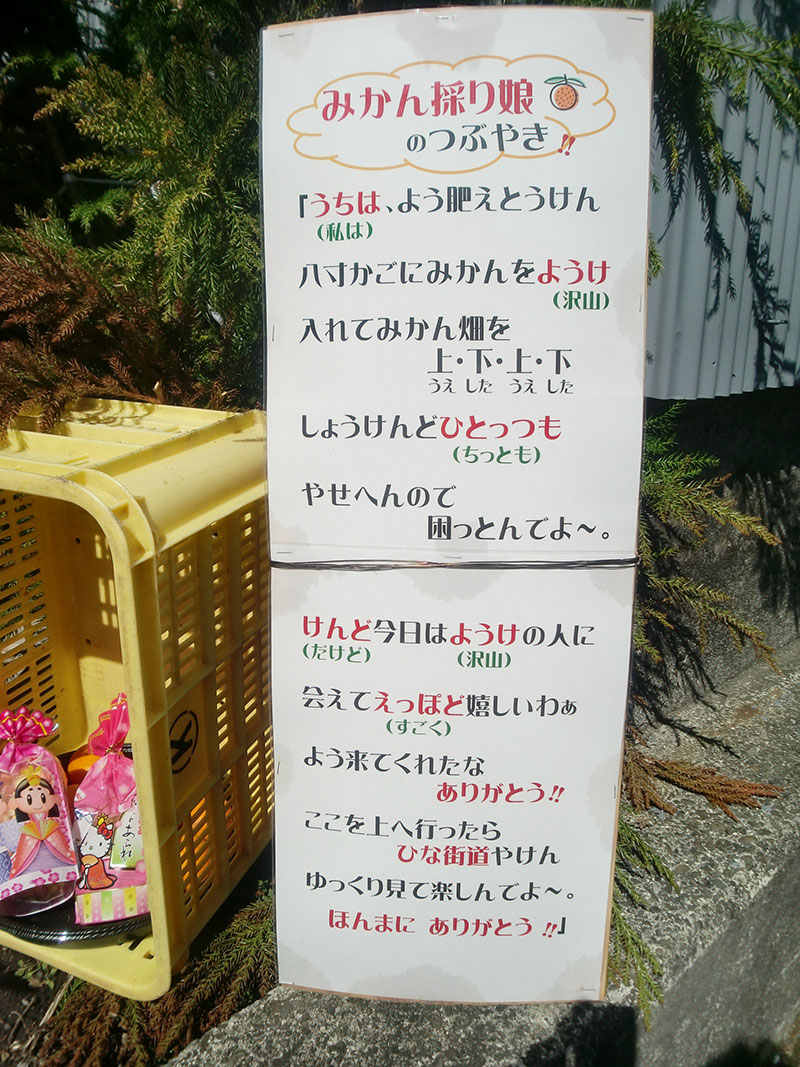 みかん採り娘
のつぶやき!!
「うちは、よう肥えとうけん
(私は)
八寸かごにみかんをようけ
(沢山)
入れてみかん畑を
上・下・上・下
うえ した うえ した
しょうけんどひとっつも
(ちっとも)
やせへんので
困っとんでよ～。
けんど今日はようけの人に
(だけど) (沢山)
会えてえっぽど嬉しいわぁ
(すごく)
よう来てくれたな
ありがとう!!
ここを上へ行ったら
ひな街道やけん
ゆっくり見て楽しんでよ～。
ほんまに ありがとう!!」
あられ